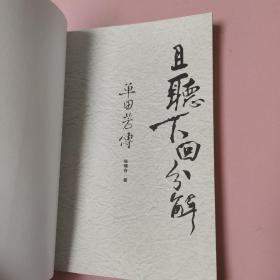 且聽下回分解
單田芳傳